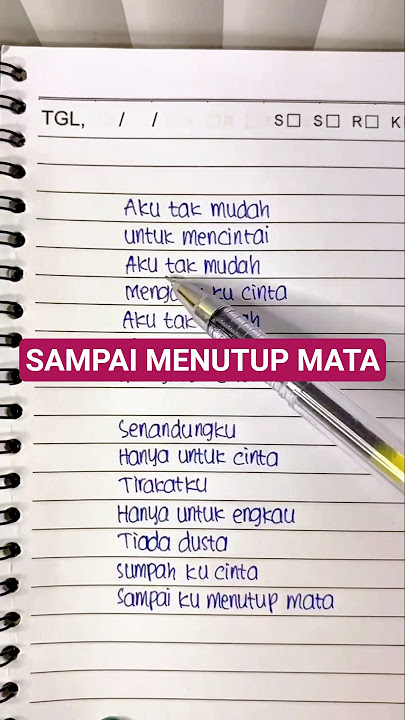 TGL, / / S□ S□ R□ K
Aku tak mudah
untuk mencintai
Aku tak mudah
ku cinta
Aku tak
SAMPAI MENUTUP MATA
Senandungku
Hanya untuk cinta
Tirakatku
Hanya untuk engkau
Tiada dusta
sumpah ku cinta
Sampai ku menutup mata